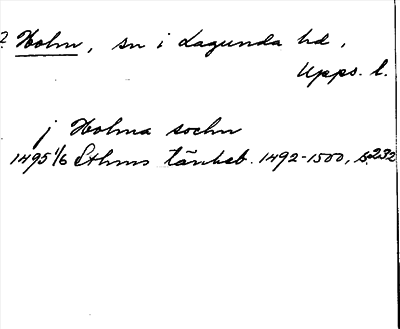 ? Holm, sn i Lagunda hd,
Upps. l.
j Holma sochn
1495 1/6 Sthms tänkeb. 1492-1500, s. 232